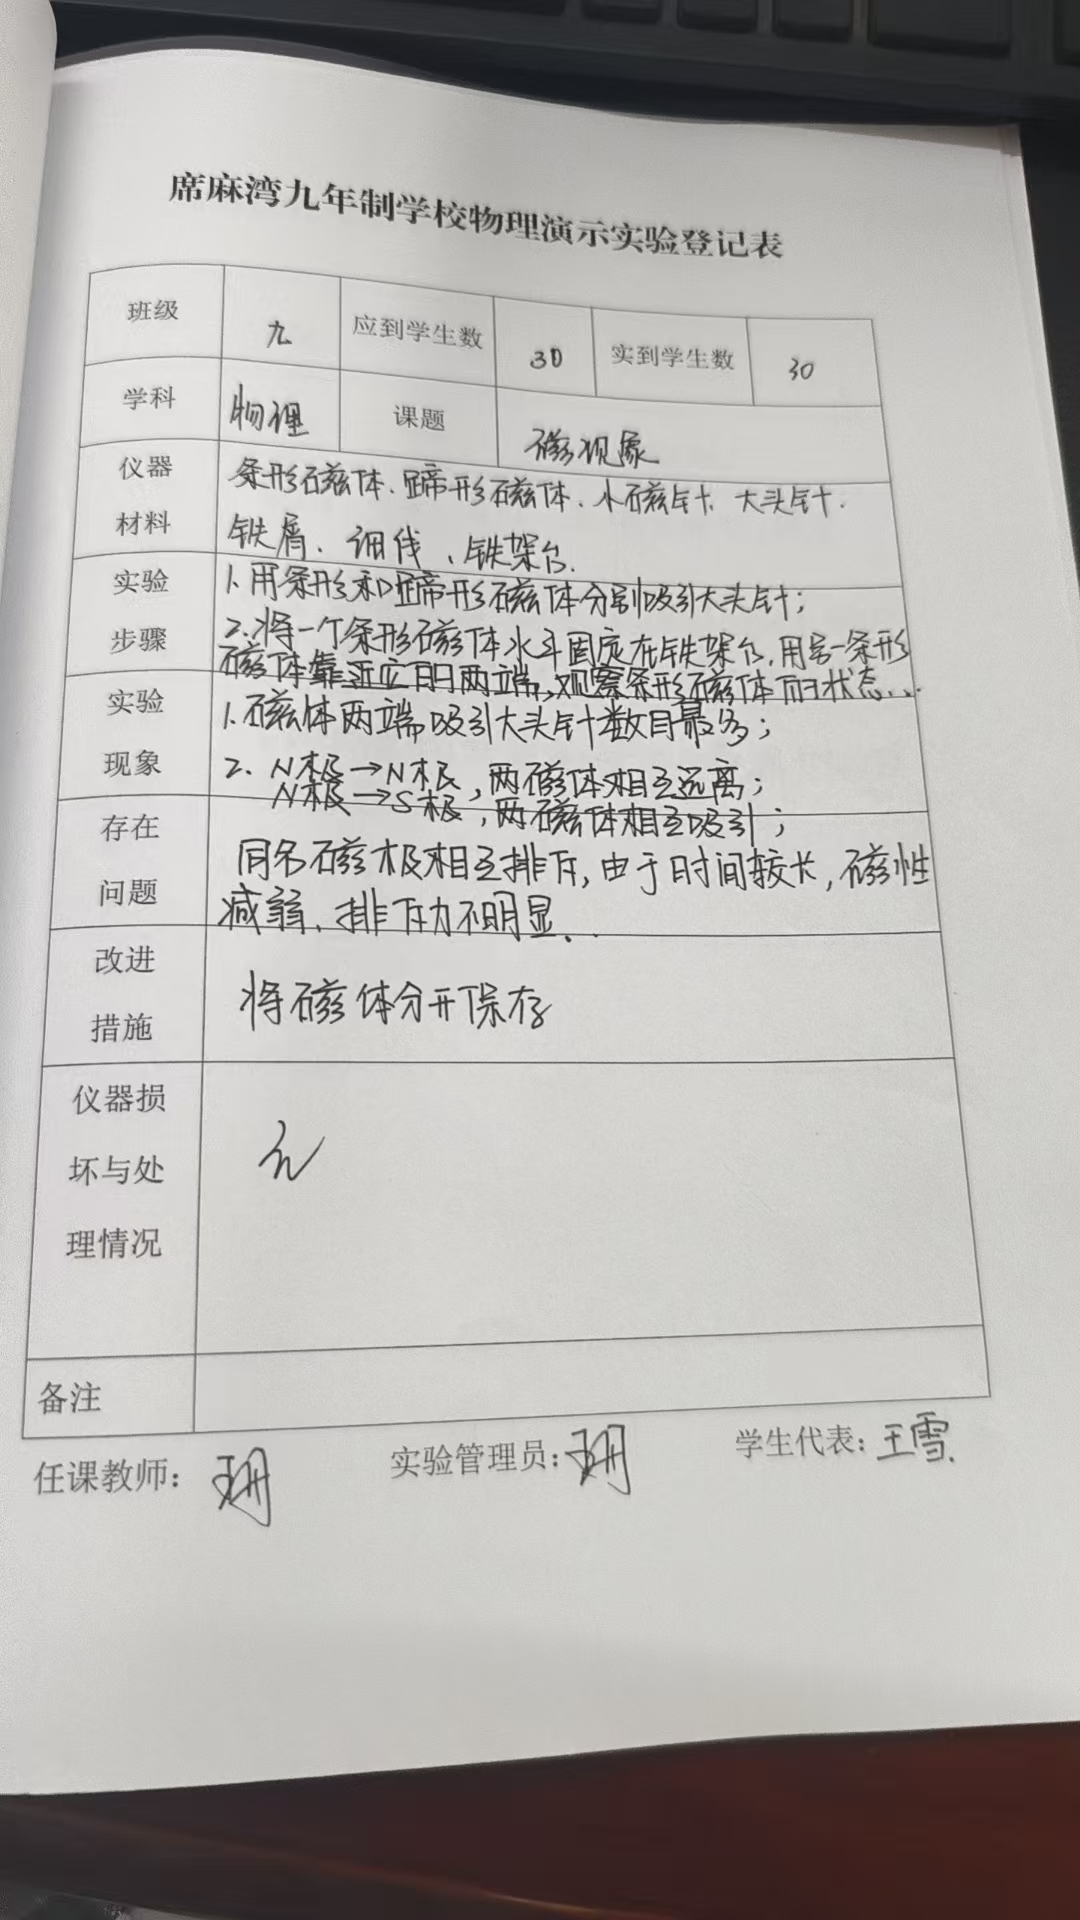 席麻湾九年制学校物理演示实验登记表
班级 九 应到学生数 30 实到学生数 30
学科 物理 课题 磁现象
仪器 条形磁磁体、蹄形磁体、小磁针、大头针、
材料 铁屑、细线、铁架台.
实验 1.用条形和蹄形磁体分别吸引大头针；
步骤 2.将一个条形磁体水平固定在铁架台,用另一条形
磁体靠近它的两端,观察条形磁体的状态...
实验 1.磁体两端吸引大头针数目最多；
现象 2. N极→N极,两磁体相互远离；
N极→S极,两磁体相互吸引；
存在 同名磁极相互排斥,由于时间较长,磁性
问题 减弱、排斥力不明显...
改进
措施 将磁体分开保存
仪器损
坏与处 无
理情况
备注
任课教师： 实验管理员: 学生代表: 王雪.